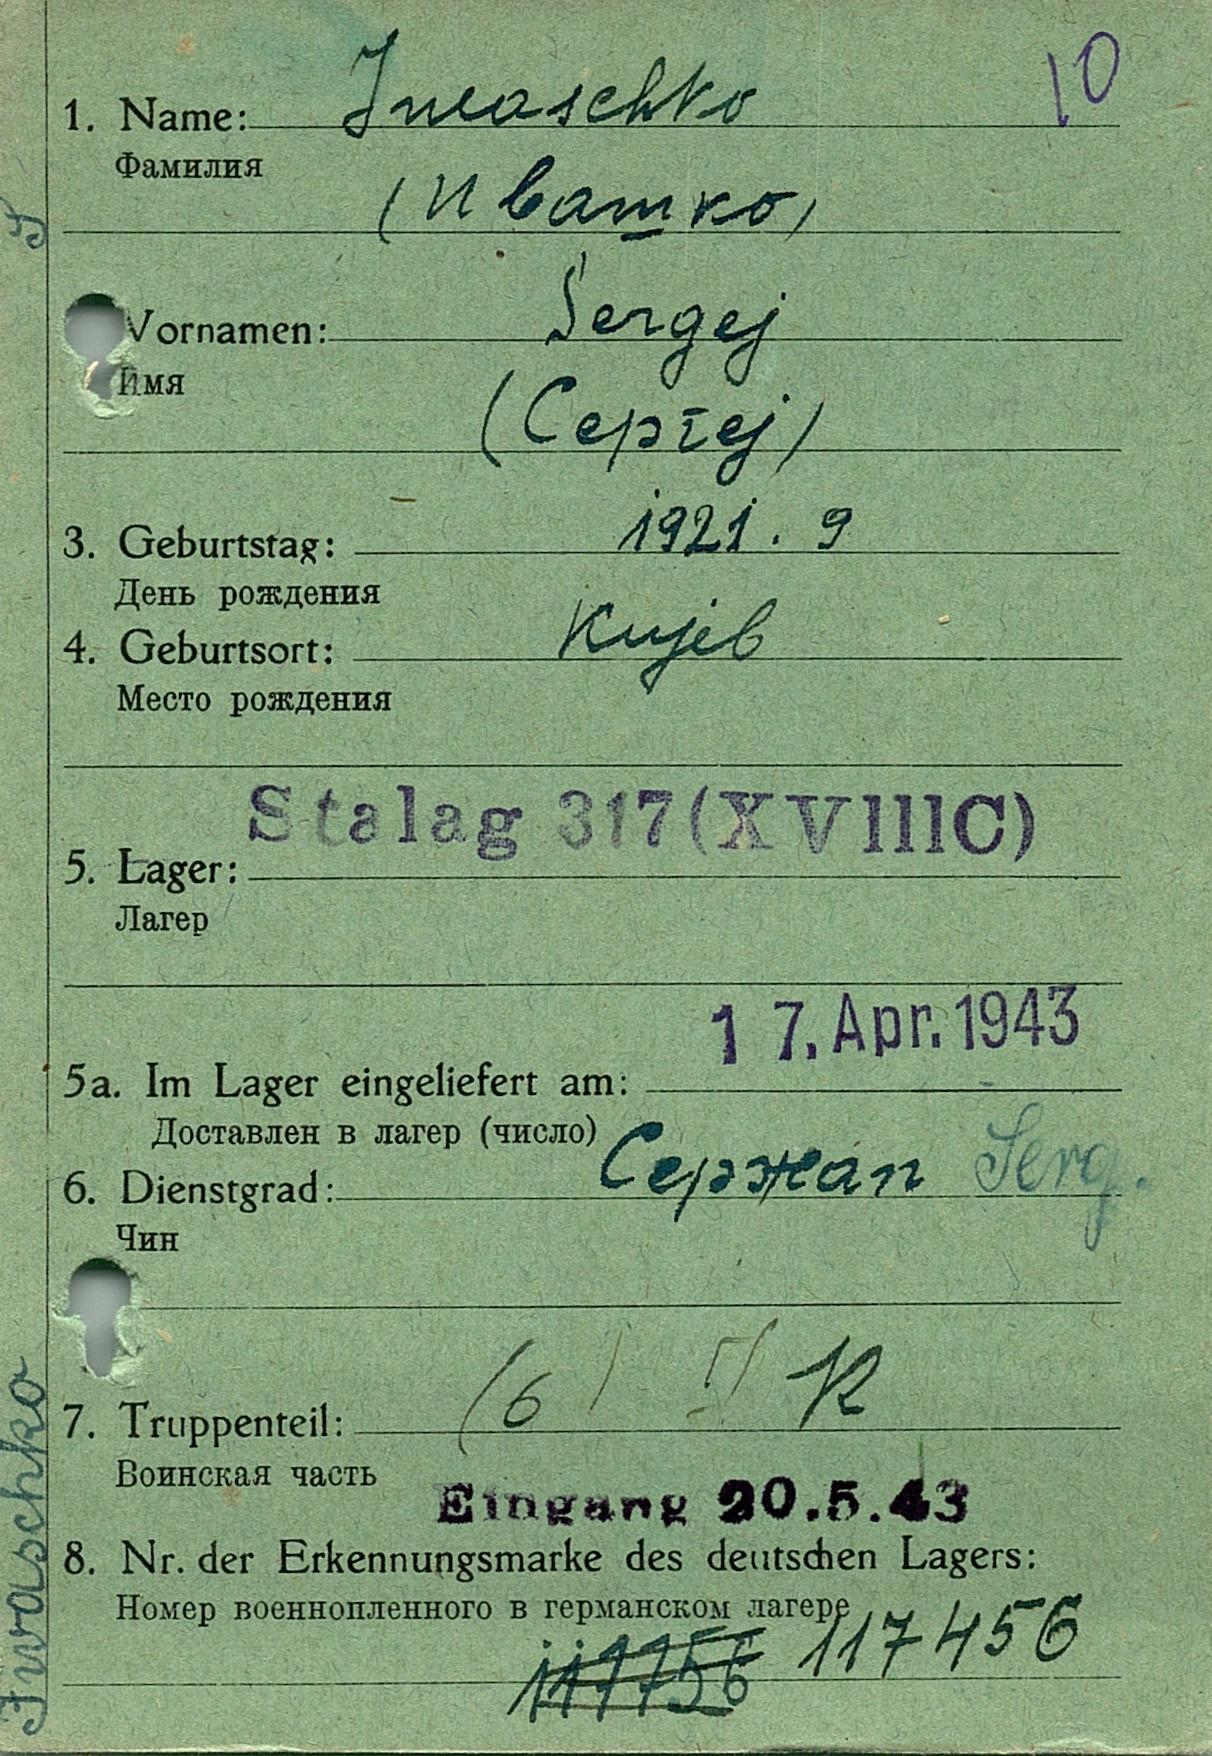 10
1. Name: Iwaschko
Фамилия
(Ивашко)
Vornamen: Sergej
Имя
(Сергеj)
3. Geburtstag: 1921. 9
День рождения
4. Geburtsort: Kujeв
Место рождения
Stalag 317 (XVIIIC)
5. Lager:
Лагер
17. Apr. 1943
5a. Im Lager eingeliefert am:
Доставлен в лагер (число)
6. Dienstgrad: Сержан Serg.
Чин
7. Truppenteil:
Воинская часть
Eingang 20.5.43
8. Nr. der Erkennungsmarke des deutschen Lagers:
Номер военнопленного в германском лагере
117456
Iwaschko